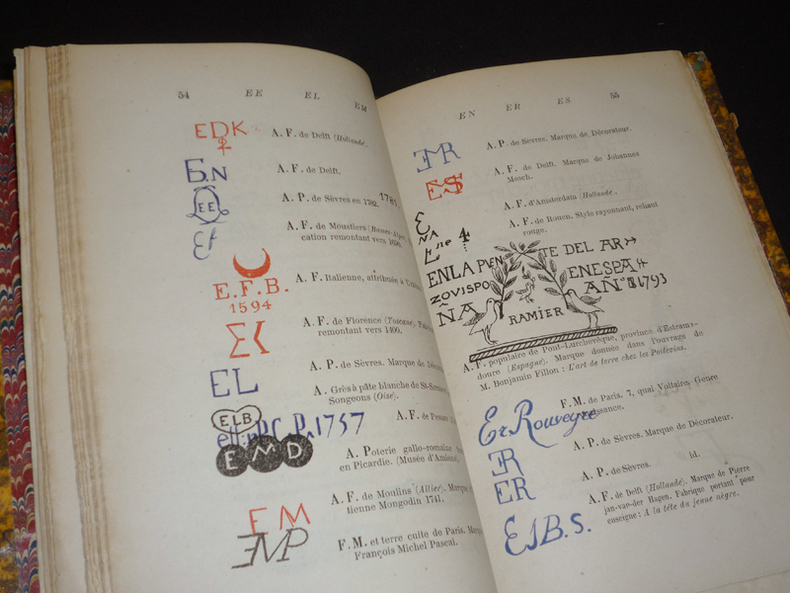 54 EE EL EM
EDK A. F. de Delft (Hollande.
A. F. de Delft.
EE A. P. de Sèvres en 1782. 1781
A. F. de Moustiers
cation remontant vers
E.F.B. A. F. Italienne, attribuée à
1594
A. F. de Florence (Toscane).
remontant vers 1400.
A. P. de Sèvres. Marque de
EL
A. Grès à pâte blanche de
Songeons (Oise).
ELB A. F. de
1757
EMD A. Poterie gallo-romaine
en Picardie. (Musée d'Amiens
A. F. de Moulins (Allier).
tienne Mongodin 1741.
FM
F. M. et terre cuite de Paris.
François Michel Pascal.
EN ER ES 55
A. P. de Sèvres. Marque de Décorateur.
A. F. de Delft. Marque de Johannes
Mesch.
A. F. d'Amsterdam (Hollande.
A. F. de Rouen. Style rayonnant, reliant
rouge.
EN LA PVEN TE DEL AR
ZOVISPO EN ESPA
ÑA RAMIER AN° 1793
A. F. populaire de Pont-Lurchevêque, province d'Estrama-
doure (Espagne). Marque donnée dans l'ouvrage de
M. Benjamin Fillon : L'art de terre chez les Poitevins.
Er Rouveyre F. M. de Paris. 7, quai Voltaire. Genre
A. P. de Sèvres. Marque de Décorateur.
ER A. P. de Sèvres. id.
A. F. de Delft (Hollande). Marque de Pierre
jan-van-der Hagen. Fabrique portant pour
enseigne : A la tête du jeune nègre.